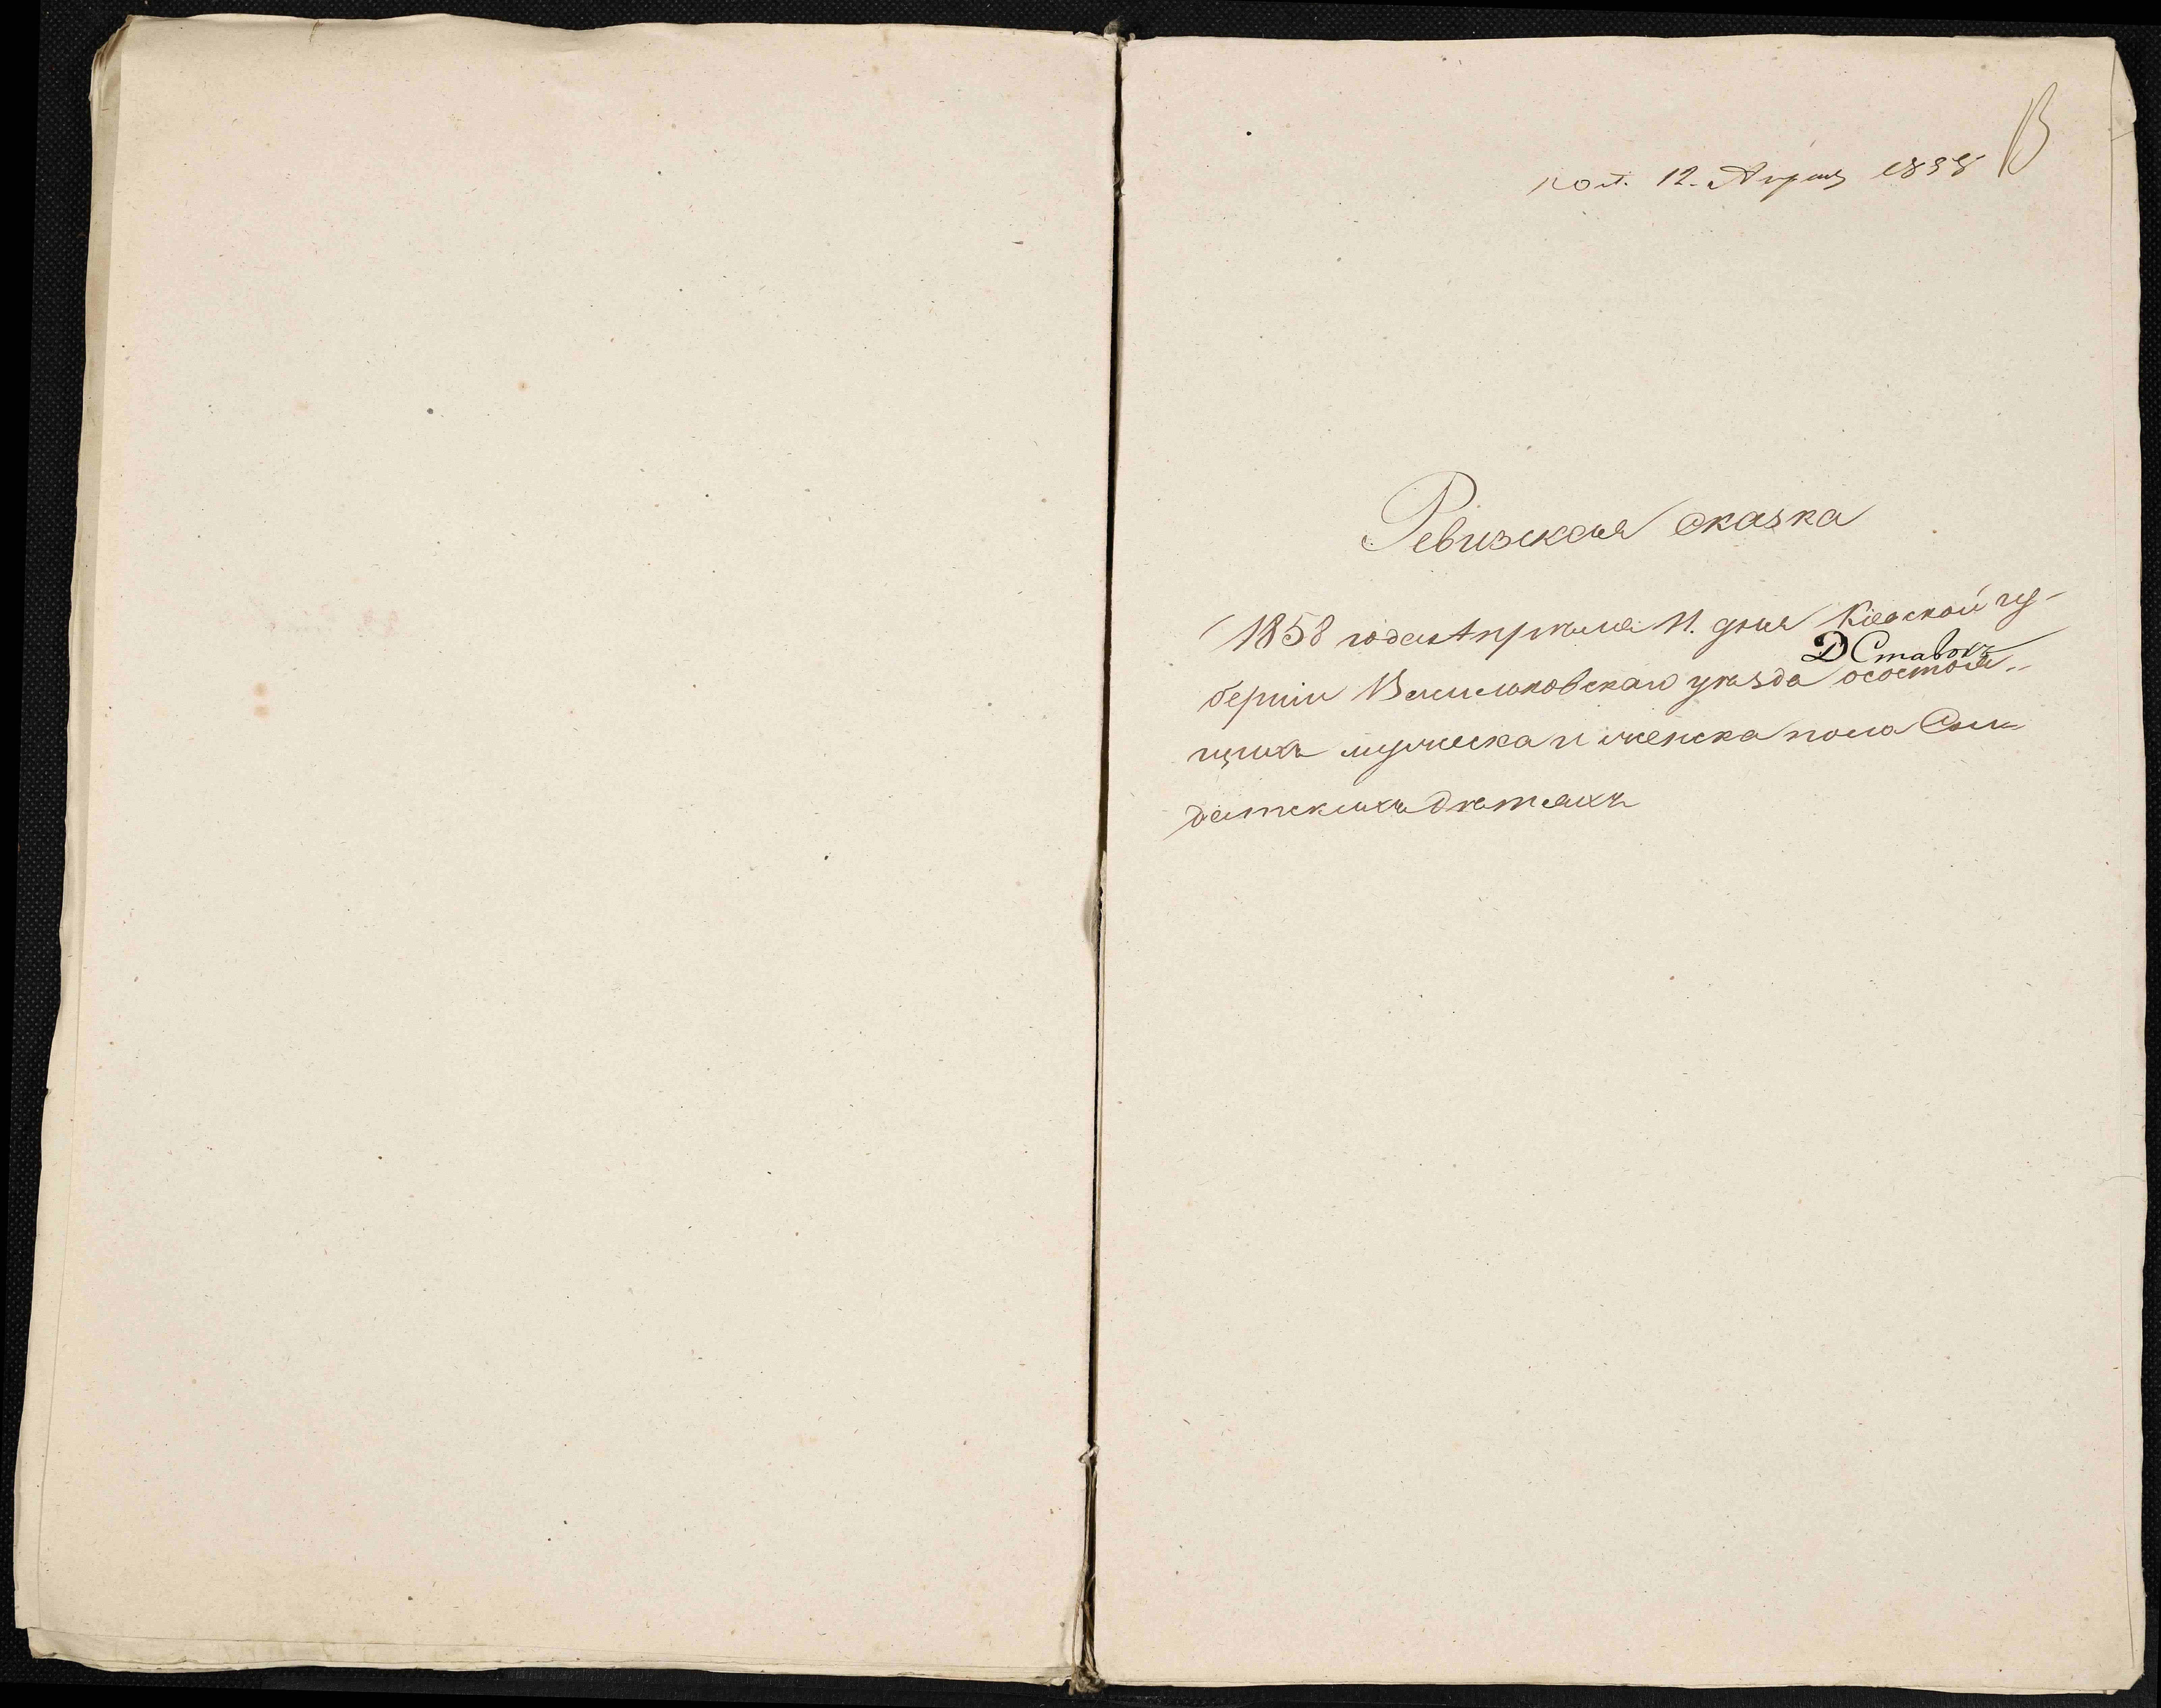 пол. 12. Апреля 1858
В
Ревизская сказка
1858 года Апреля 11. дня Кіевской гу-
Д Ставокъ
берніи Васильковскаго уѣзда о состоя-
щихъ мужеска и женска пола Сол-
датскихъ дѣтяхъ